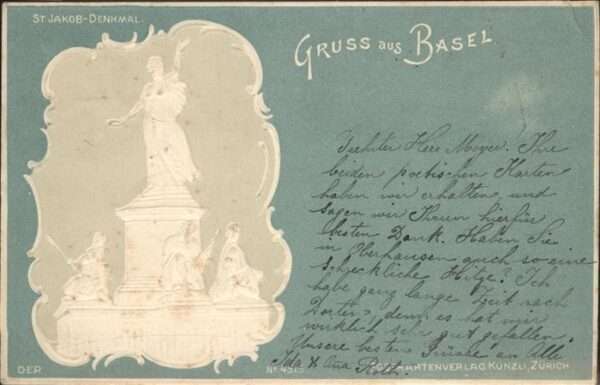 ST. JAKOB-DENKMAL.
GRUSS aus BASEL
Herr Meyer. Ihre
beiden poetischen Karten
haben wir erhalten, und
sagen wir Ihnen hierfür
besten Dank. Haben Sie
in Oberhausen auch so eine
schreckliche Hitze? Ich
habe ganz lange Zeit nach
denn es hat mir
wirklich sehr gut gefallen.
Unsere besten Grüsse an Alle
Ida &
DEP.
KARTENVERLAG KÜNZLI, ZÜRICH